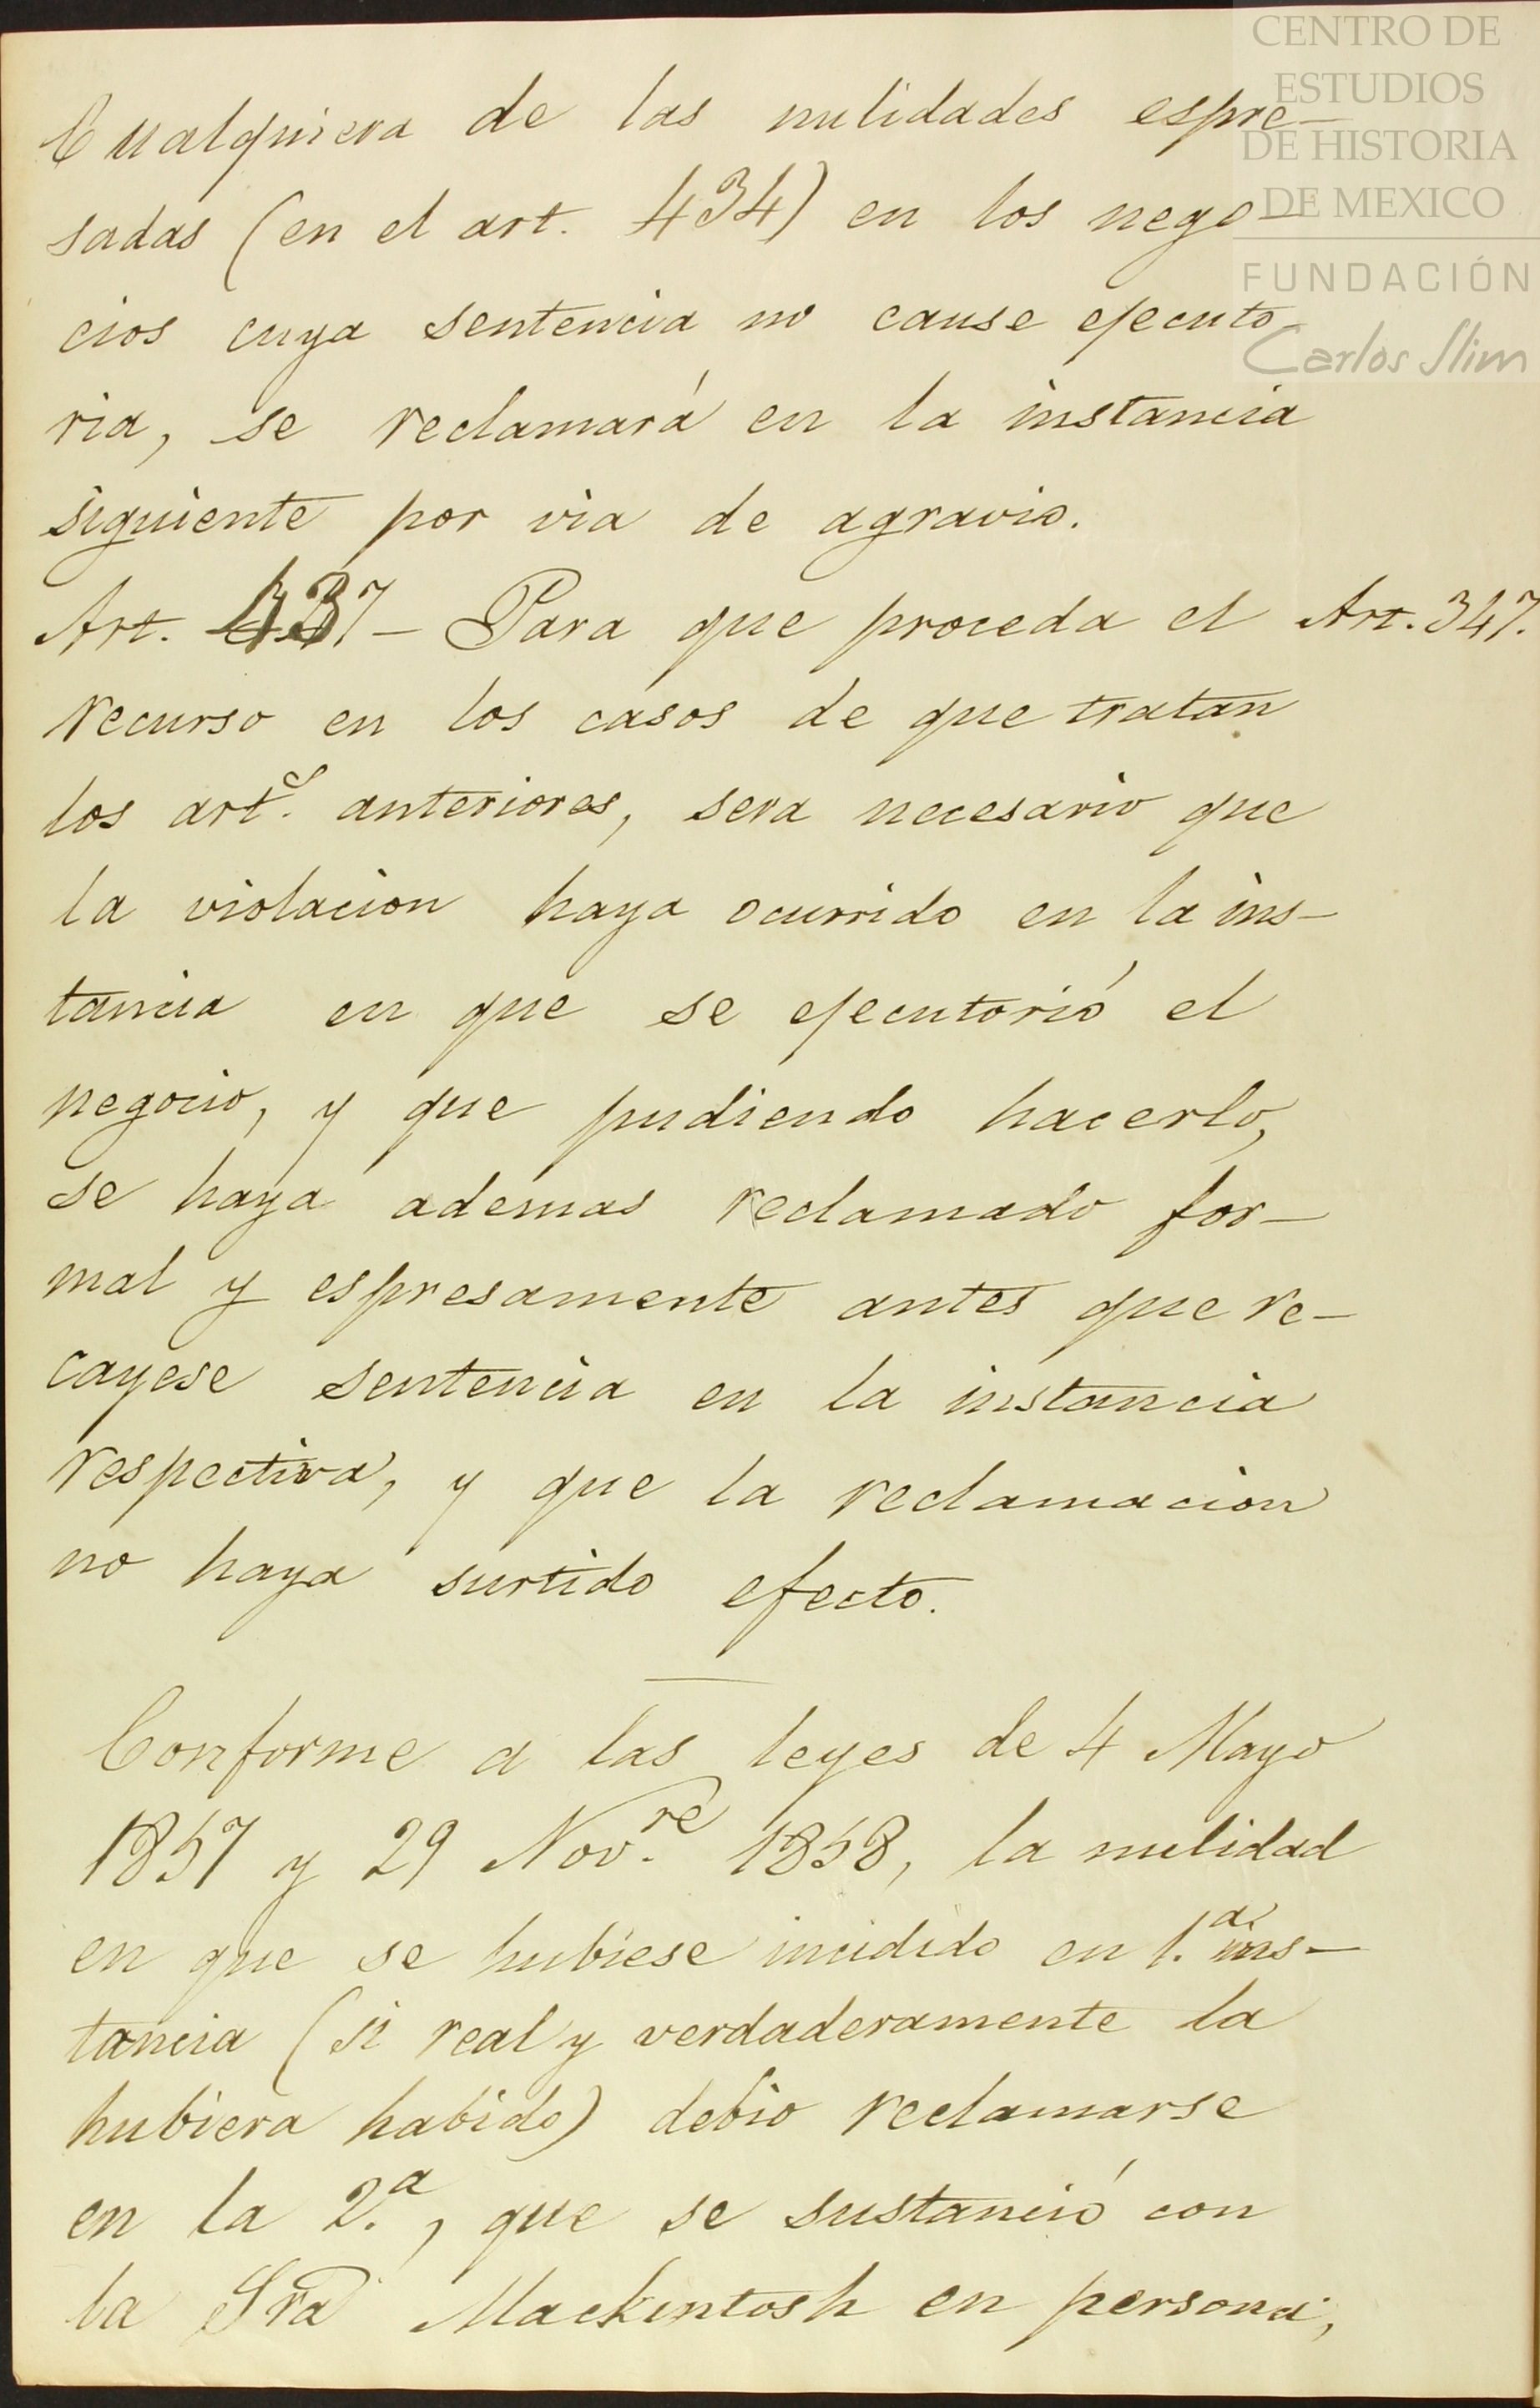 CENTRO DE
ESTUDIOS
DE HISTORIA
DE MEXICO
FUNDACIÓN
Carlos Slim
Cualquiera de las nulidades espre-
sadas (en el art. 434) en los nego-
cios cuya sentencia no cause ejecuto-
ria, se reclamará en la instancia
siguiente por via de agravio.
Art. 437 - Para que proceda el Art. 347.
recurso en los casos de que tratan
los art.s anteriores, sera necesario que
la violacion haya ocurrido en la ins-
tancia en que se ejecutorió el
negocio, y que pudiendo hacerlo,
se haya ademas reclamado for-
mal y espresamente antes que re-
cayese sentencia en la instancia
respectiva, y que la reclamacion
no haya surtido efecto.
Conforme a las leyes de 4 Mayo
1857 y 29 Nov.re 1858, la nulidad
en que se hubiese incidido en 1.a ins-
tancia (si real y verdaderamente la
hubiera habido) debio reclamarse
en la 2.a, que se sustanció con
la Sra Mackintosh en persona,